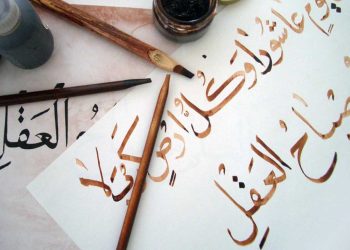 يوم عاشورا وكلُ ارضٍ كربلا
صباح العقلِ
العَقل